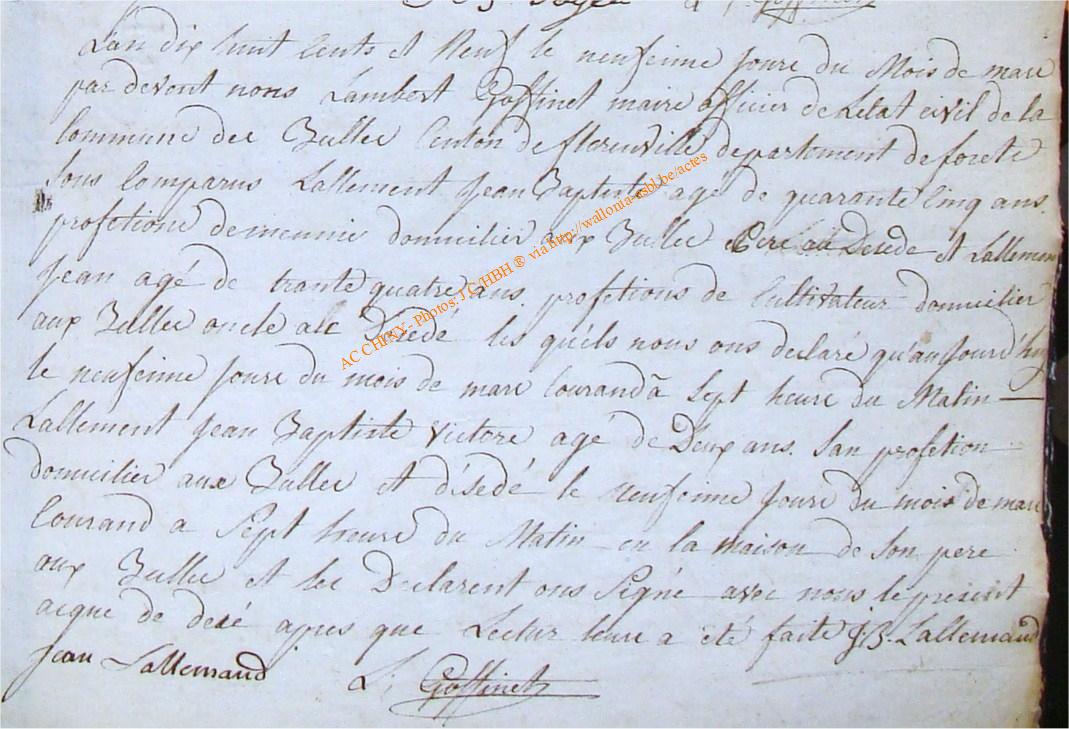 L'an dix huit Cents et Neuf le neufeime joure du Mois de mare
par devent nous Lambert Goffinet maire officier de Letat civil de la
Commune dec Bullec Centon de florenville departement de forete
Sous Comparus Lallement Jean Baptiste agé de quarante Cinq ans
profetione demeunie domicilier aux Bullec Pere au Desede et Lallement
Jean agé de trante quatre ans. profetions de Cultivateur domicilier
aux Bullec oncle alc Desedé les quéls nous ons declaré qu'au jourd'huy
le neufeime joure du mois de mare Courand à Sept heure du Matin
Lallement Jean Baptiste Victore agé de Deux ans. San profetion
domicilier aux Bullec et désedé le neufeime joure du mois de mare
Courand a Sept heure du Matin en la maison de Son pere
aux Bullec et lec Declarent ons Signé avec nous le présent
acque de desé apres que Lectur leure a été faite J:B. Lallemand
Jean Lallemand L; Goffinet
AC CHINY - Photos: J C/HBH ® via http://wallonia-asbl.be/actes